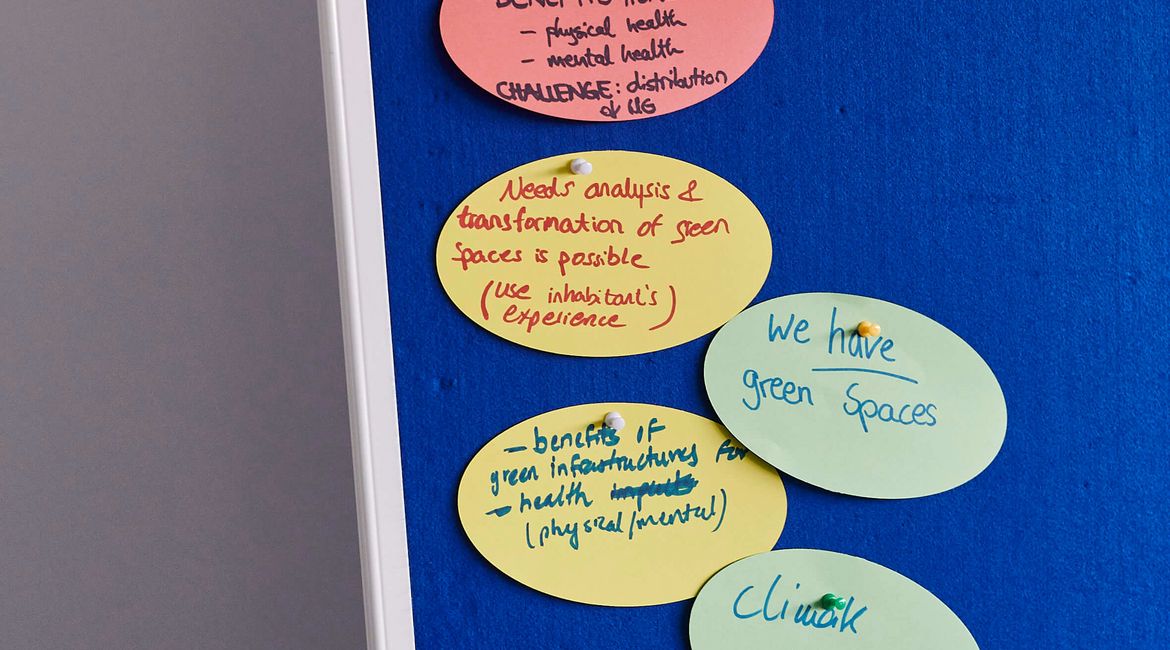 BENEFITS
- physical health
- mental health
CHALLENGE: distribution
of UG
Needs analysis &
transformation of green
spaces is possible
(use inhabitant's
experience)
We have
green Spaces
- benefits of
green infrastructures for
- health
(physical/mental)
Climate